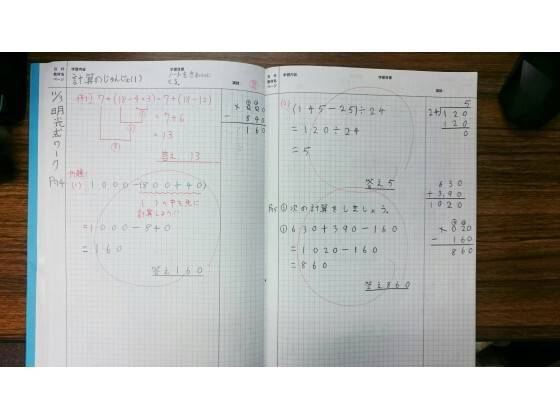 計算のじゅんじょ(1)
ノートをきれいに
とる。
11/3
明光式ワーク
P14
例1) 7+(18-4×3)=7+(18-12)
=7+6
=13
答え 13
例題1
(1) 1000-(800+40)
( )の中を先に
計算しよう!!
=1000-840
=160
答え160
-840
160
(2) (145-25)÷24
=120÷24
=5
答え5
5
24)120
120
0
P15 ① 次の計算をしましょう。
① 630+390-160
=1020-160
=860
答え860
630
+390
1020
-160
860